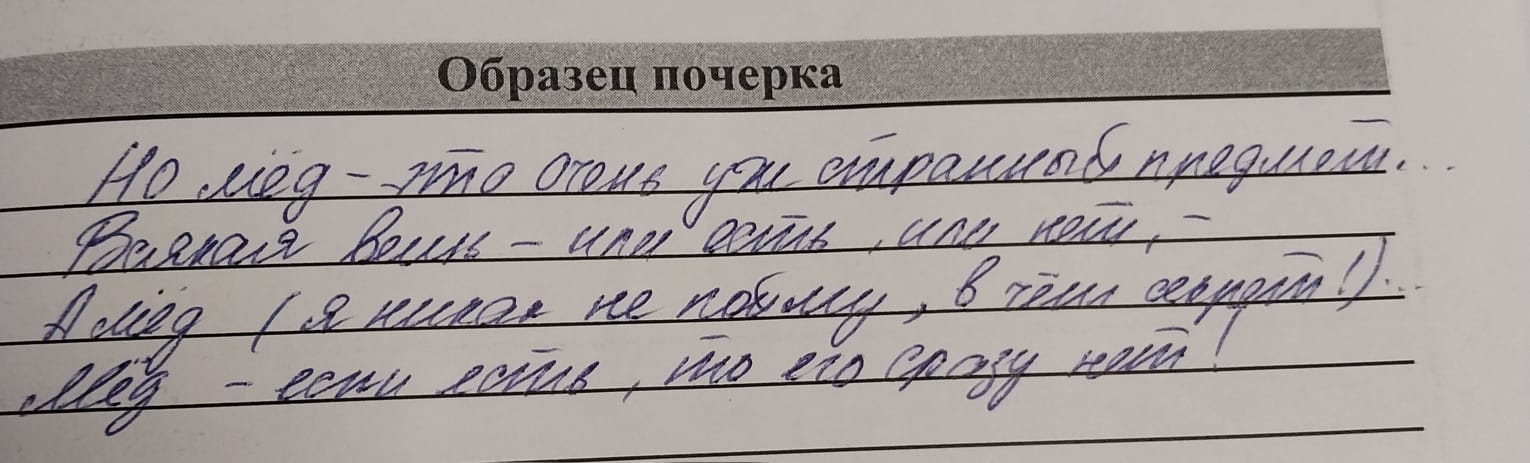 Образец почерка
Но мёд - это очень уж странный предмет...
Всякая вещь - или есть, или нет, -
А мёд (я никак не пойму, в чём секрет!)...
Мёд - если есть, то его сразу нет!